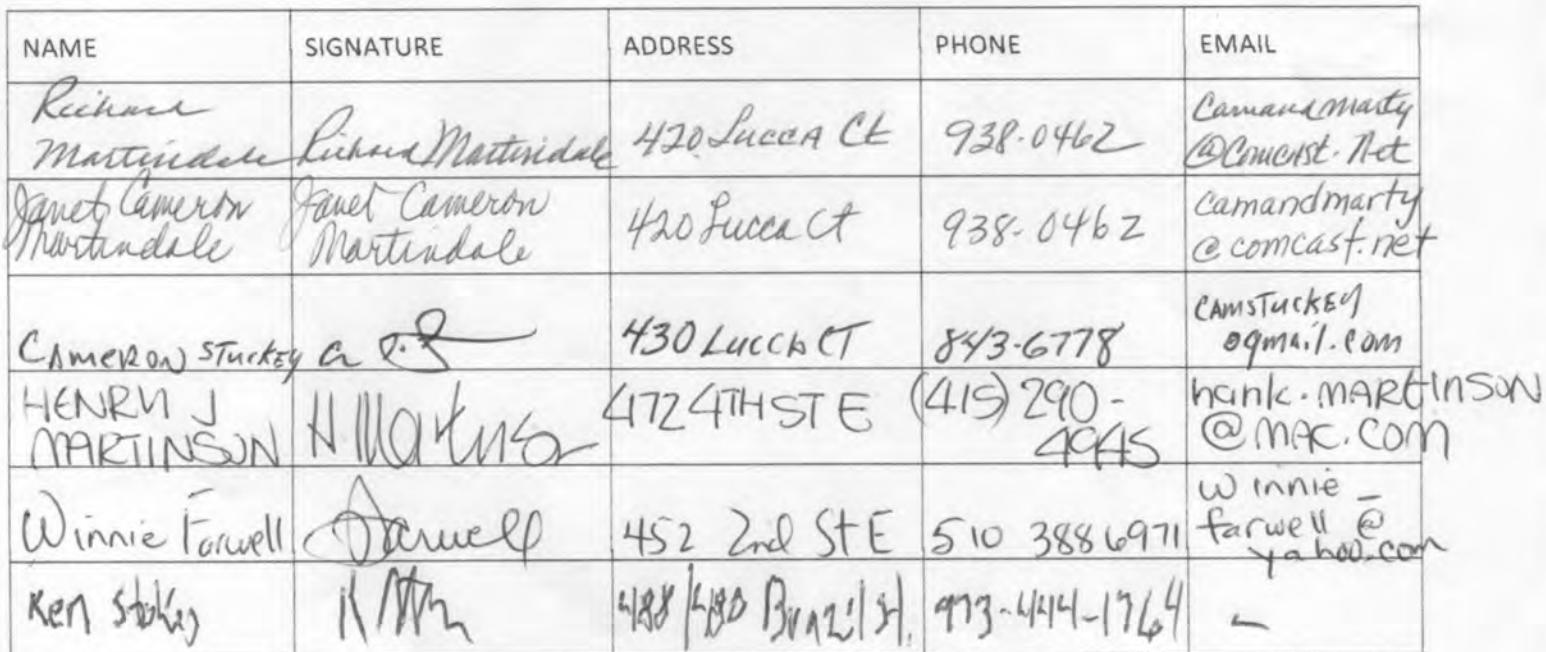 NAME SIGNATURE ADDRESS PHONE EMAIL
Richard
Martindale Richard Martindale 420 Lucca Ct 938-0462 Camandmarty
@Comcast.Net
Janet Cameron
Martindale Janet Cameron
Martindale 420 Lucca Ct 938-0462 camandmarty
@comcast.net
CAMERON STUCKEY 430 LUCCA CT 843-6778 CAMSTUCKEY
@gmail.com
HENRY J
MARTINSON H Martinson 472 4TH ST E (415) 290-
4945 hank.MARTINSON
@MAC.COM
Winnie Farwell Farwell 452 2nd St E 510 3886971 winnie_
farwell@
yahoo.com
Ken Stokes 488/480 Brazil St. 973-444-1764 -